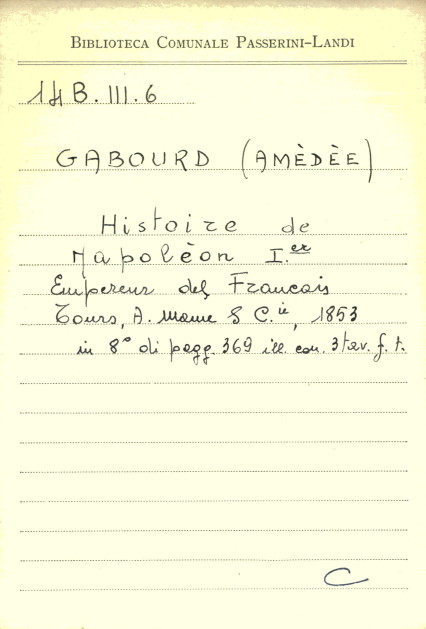 BIBLIOTECA COMUNALE PASSERINI-LANDI
14 B. III. 6
GABOURD (AMÈDÈE)
Histoire de
Napolèon I.er
Empereur des Francais
Tours, A. Mame & C.ie, 1853
in 8° di pagg. 369 ill. con. 3 tav. f. t.
C